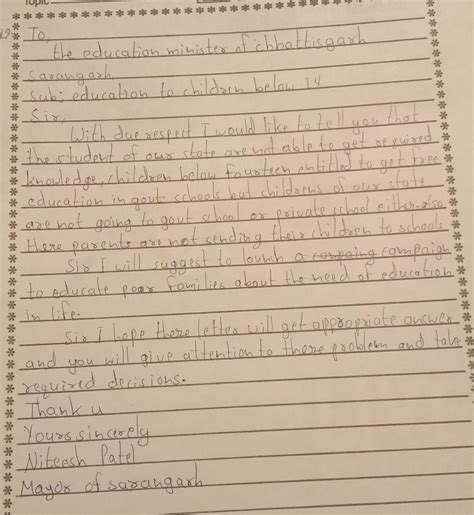 Topic
29 To,
the education minister of chhattisgarh
Sarangarh.
Sub: education to children below 14
Sir,
With due respect I would like to tell you that
the student of our state are not able to get required
knowledge, children below fourteen antitled to get free
education in govt schools but childrens of our state
are not going to govt school or private school either. also
there parents are not sending their children to schools.
Sir I will suggest to launh a campaign
to educate poor families about the need of education
in life.
Sir I hope there letter will get appropriate answer
and you will give attention to there problem and take
required decisions.
Thank u
Yours sincerely
Niteesh Patel
Mayor of sarangarh